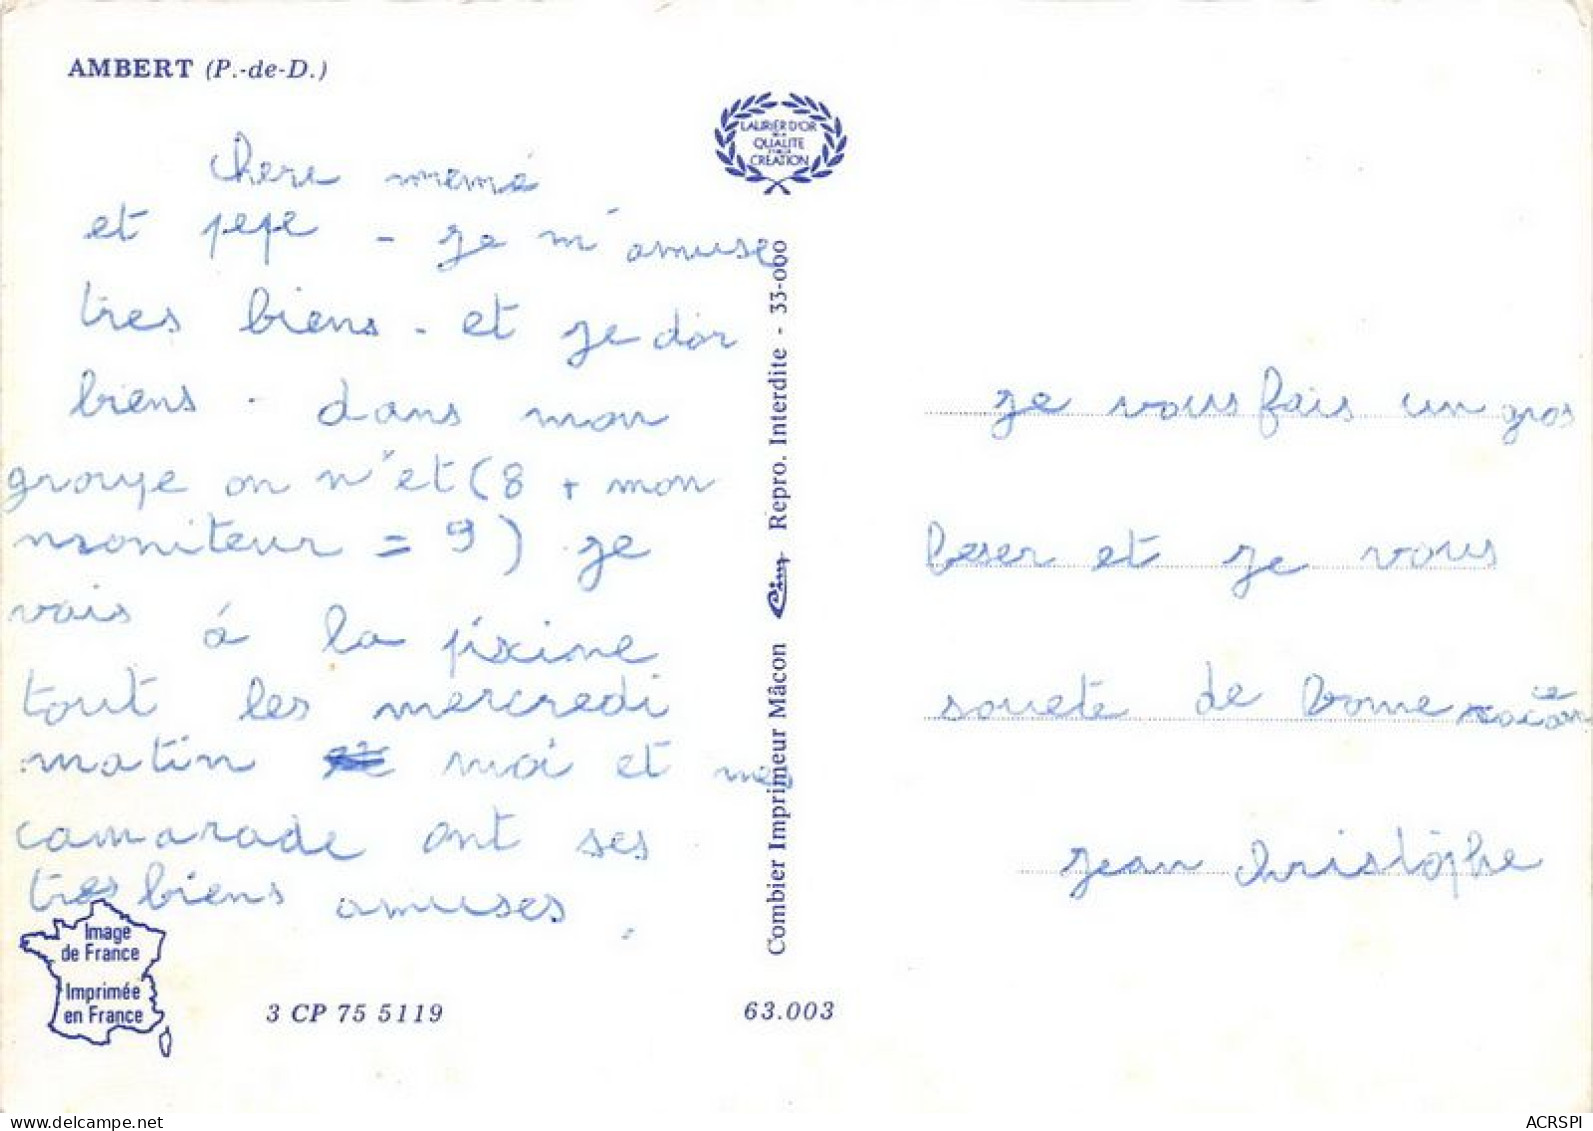 AMBERT (P.-de-D.)
LAURIER D'OR
DE LA
QUALITE
CREATION
chere memé
et pepe - je m'amuse
tres biens - et je dor
biens - dans mon
groupe on n'et (8 + mon
moniteur = 9) je
vais á la pixine
tout les mercredi
matin moi et mes
camarade ont ses
tres biens amuses.
Image
de France
Imprimée
en France
3 CP 75 5119
63.003
Combier Imprimeur Mâcon Cim Repro. Interdite - 33-000
je vous fais un gros
beser et je vous
souete de bone
jean christophe
ACRSPI